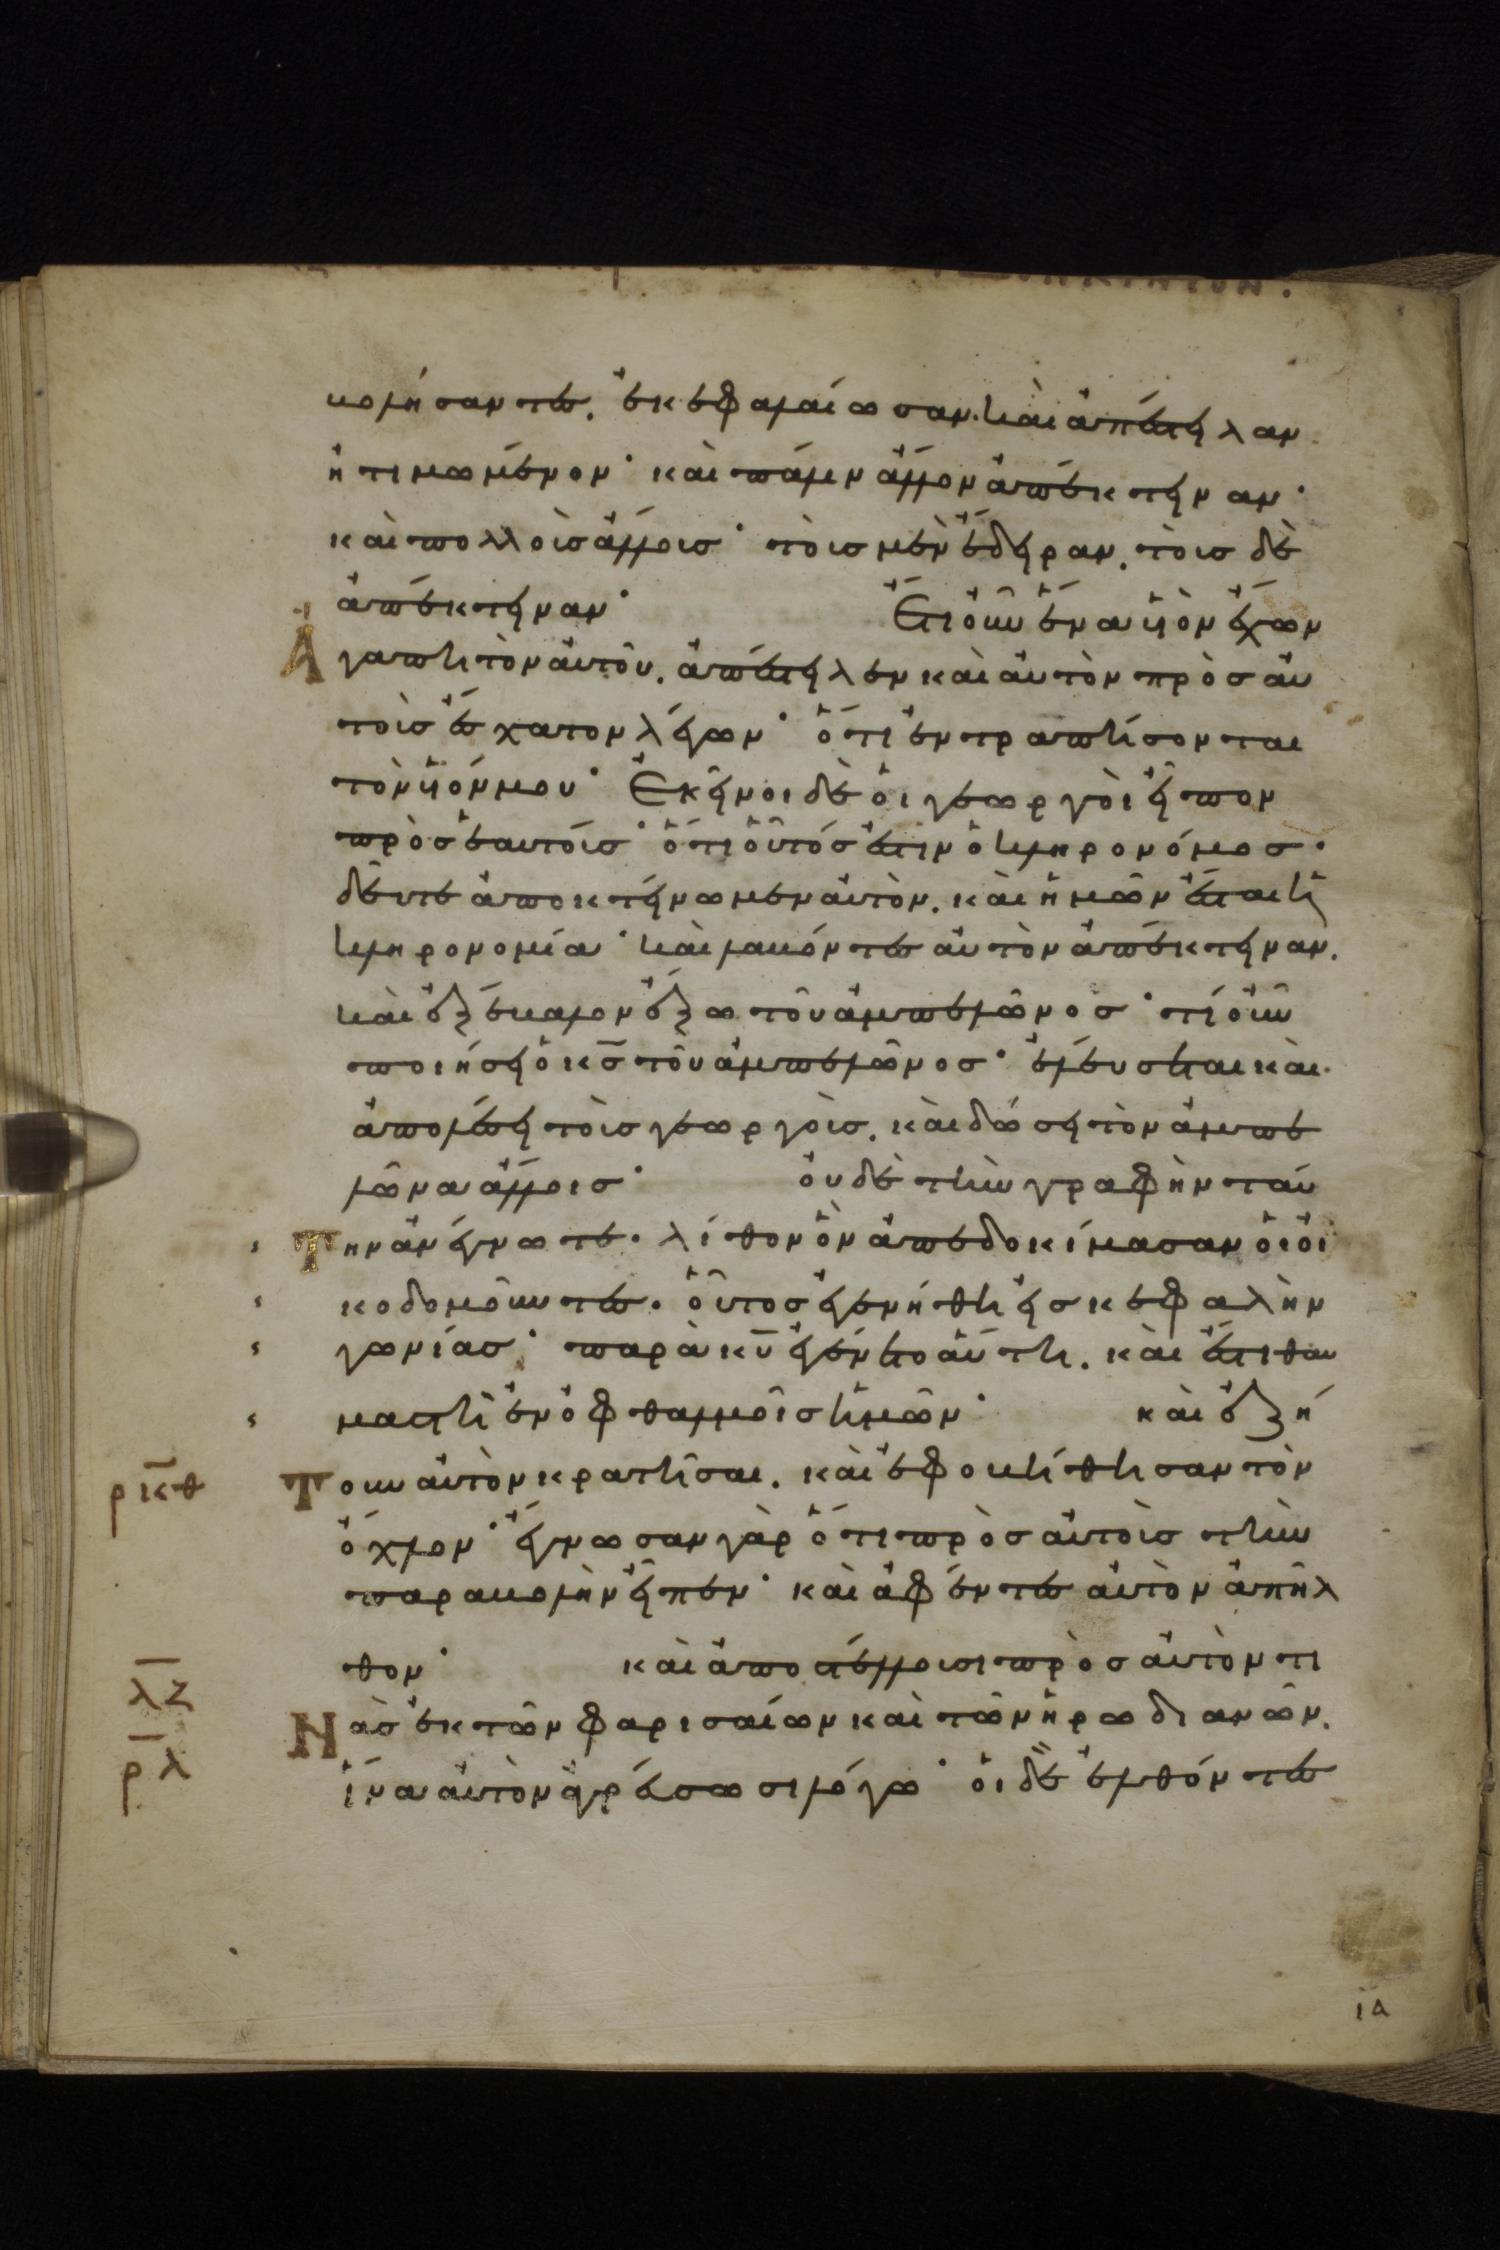 βολήσαντες. ἐκεφαλαίωσαν. καὶ ἀπέστειλαν
ἠτιμωμένον· καὶ πάλιν ἄλλον ἀπέκτειναν·
καὶ πολλοὺς ἄλλους· τοὺς μὲν ἔδειραν. τοὺς δὲ
ἀπέκτειναν· Ἔτι οὖν ἕνα υἱὸν ἔχων
Ἀγαπητὸν αὐτοῦ. ἀπέστειλεν καὶ αὐτὸν πρὸς αὐ
τοὺς ἔσχατον λέγων· ὅτι ἐντραπήσονται
τὸν υἱόν μου· Ἐκεῖνοι δὲ οἱ γεωργοὶ εἶπον
πρὸς ἑαυτούς· ὅτι οὗτός ἐστιν ὁ κληρονόμος·
δεῦτε ἀποκτείνωμεν αὐτὸν. καὶ ἡμῶν ἔσται ἡ
κληρονομία· καὶ λαβόντες αὐτὸν ἀπέκτειναν.
καὶ ἐξέβαλον ἔξω τοῦ ἀμπελῶνος· τί οὖν
ποιήσει ὁ κς τοῦ ἀμπελῶνος· ἐλεύσεται καὶ
ἀπολέσει τοὺς γεωργοὺς. καὶ δώσει τὸν ἀμπε
λῶνα ἄλλοις· οὐδὲ τὴν γραφὴν ταύ
Την ἀνέγνωτε. λίθον ὃν ἀπεδοκίμασαν οἱ οἰ
κοδομοῦντες. οὗτος ἐγενήθη εἰς κεφαλὴν
γωνίας· παρὰ κυ ἐγένετο αὕτη. καὶ ἔστι θαυ
μαστὴ ἐν ὀφθαλμοῖς ἡμῶν· καὶ ἐζή
ρκθ Τουν αὐτὸν κρατῆσαι. καὶ ἐφοβήθησαν τὸν
ὄχλον· ἔγνωσαν γὰρ ὅτι πρὸς αὐτοὺς τὴν
παραβολὴν εἶπεν· καὶ ἀφέντες αὐτὸν ἀπῆλ
θον· καὶ ἀποστέλλουσι πρὸς αὐτὸν τι
λζ Νὰς ἐκ τῶν φαρισαίων καὶ τῶν ἡρωδιανῶν.
ρλ ἵνα αὐτὸν ἀγρεύσωσι λόγω· οἱ δὲ ἐλθόντες